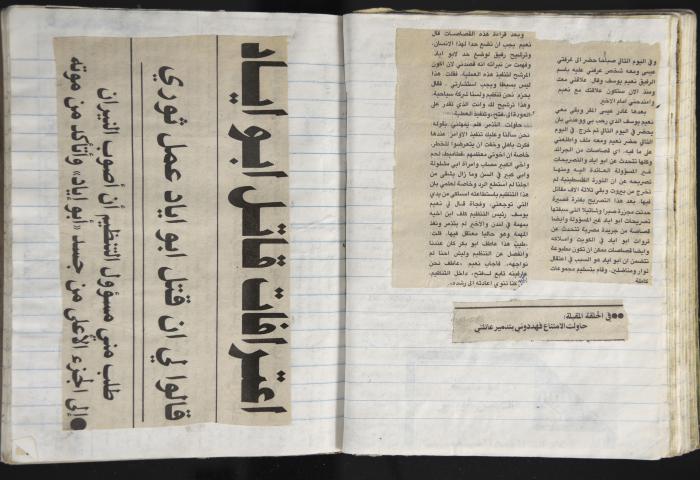 اعترافات قاتل ابو اياد
قالوا لي ان قتل ابو اياد عمل ثوري
طلب مني مسؤول التنظيم أن أصوب النيران
●إلى الجزء الأعلى من جسد «أبو إياد» وأتأكد من موته
وفي اليوم التالي صباحا حضر الى غرفتي
عيسى ومعه شخص عرفني عليه باسم
الرفيق نعيم يوسف وقال علاقتي معك
ومنذ الان ستكون علاقتك مع نعيم
وامتدحني امام الاخير
بعدها غادر عيسى المقر وبقي معي
نعيم يوسف الذي رحب بي ووعدني بان
يحضر في اليوم التالي ثم خرج. في اليوم
التالي حضر نعيم ومعه ملف واطلعني
على ما فيه، اي قصاصات من الجرائد
وكلها تتحدث عن ابو اياد والتصريحات
غير المسؤولة العائدة اليه ومنها
تصريحه عن ان الثورة الفلسطينية لم
تخرج من بيروت وبقي ثلاثة الاف مقاتل
فيها. بعد هذا التصريح بفترة قصيرة
حدثت مجزرة صبرا وشاتيلا التي سبقتها
تصريحات ابو اياد غير المسؤولة وايضا
قصاصة من جريدة مصرية تتحدث عن
ثروات ابو اياد في الكويت واملاكه
وايضا قصاصات ممكن ان تكون مطبوعة
تتضمن ان ابو اياد هو السبب في اعتقال
ثوار ومناضلين، وقام بتسليم مجموعات
كاملة
وبعد قراءة هذه القصاصات قال
نعيم يجب ان نضع حدا لهذا الانسان،
وترشيح رفيق لوضع حد لابو اياد
وفهمت من نبراته انه قصدني لان اكون
المرشح لتنفيذ هذه العملية. فقلت: هذا
ليس بسيطا ويجب استشارتي. فقال
بحزم: نحن تنظيم ولسنا شركة سياحية.
وهذا ترشيح لك وانت الذي تقدر على
العودة الى «فتح» وتنفيذ العملية.
حاولت التذمر فلم يمهلني بقوله
نحن سألنا وعليك تنفيذ الاوامر. عندها
فكرت باهلي وخفت ان يتعرضوا للخطر،
خاصة ان اخوتي معظمهم
واخي الكبير مصاب وامراة ابي مشلولة
وابي كبير في السن وما زال يشقى من
اجلنا لم استطع الرد وخاصة لعلمي بان
هذا التنظيم باستطاعته امساكي من يدي
التي توجعني. وفجأة قال لي نعيم
يوسف رئيس التنظيم كلف ابن اخيه
بمهمة في لندن والاخير لم يتذمر ونفذ
المهمة وهو حاليا معتقل فيها. قلت:
«طيب هذا عاطف ابو بكر كان عندنا
وانفصل عن التنظيم وليش احنا لم
نواجهه، فاجاب نعيم: «عاطف نحن
تابع لـ«فتح» داخل التنظيم،
كنا ننوي اعادته الى رشده».
●●في الحلقة المقبلة:
حاولت الامتناع فهددوني بتدمير عائلتي